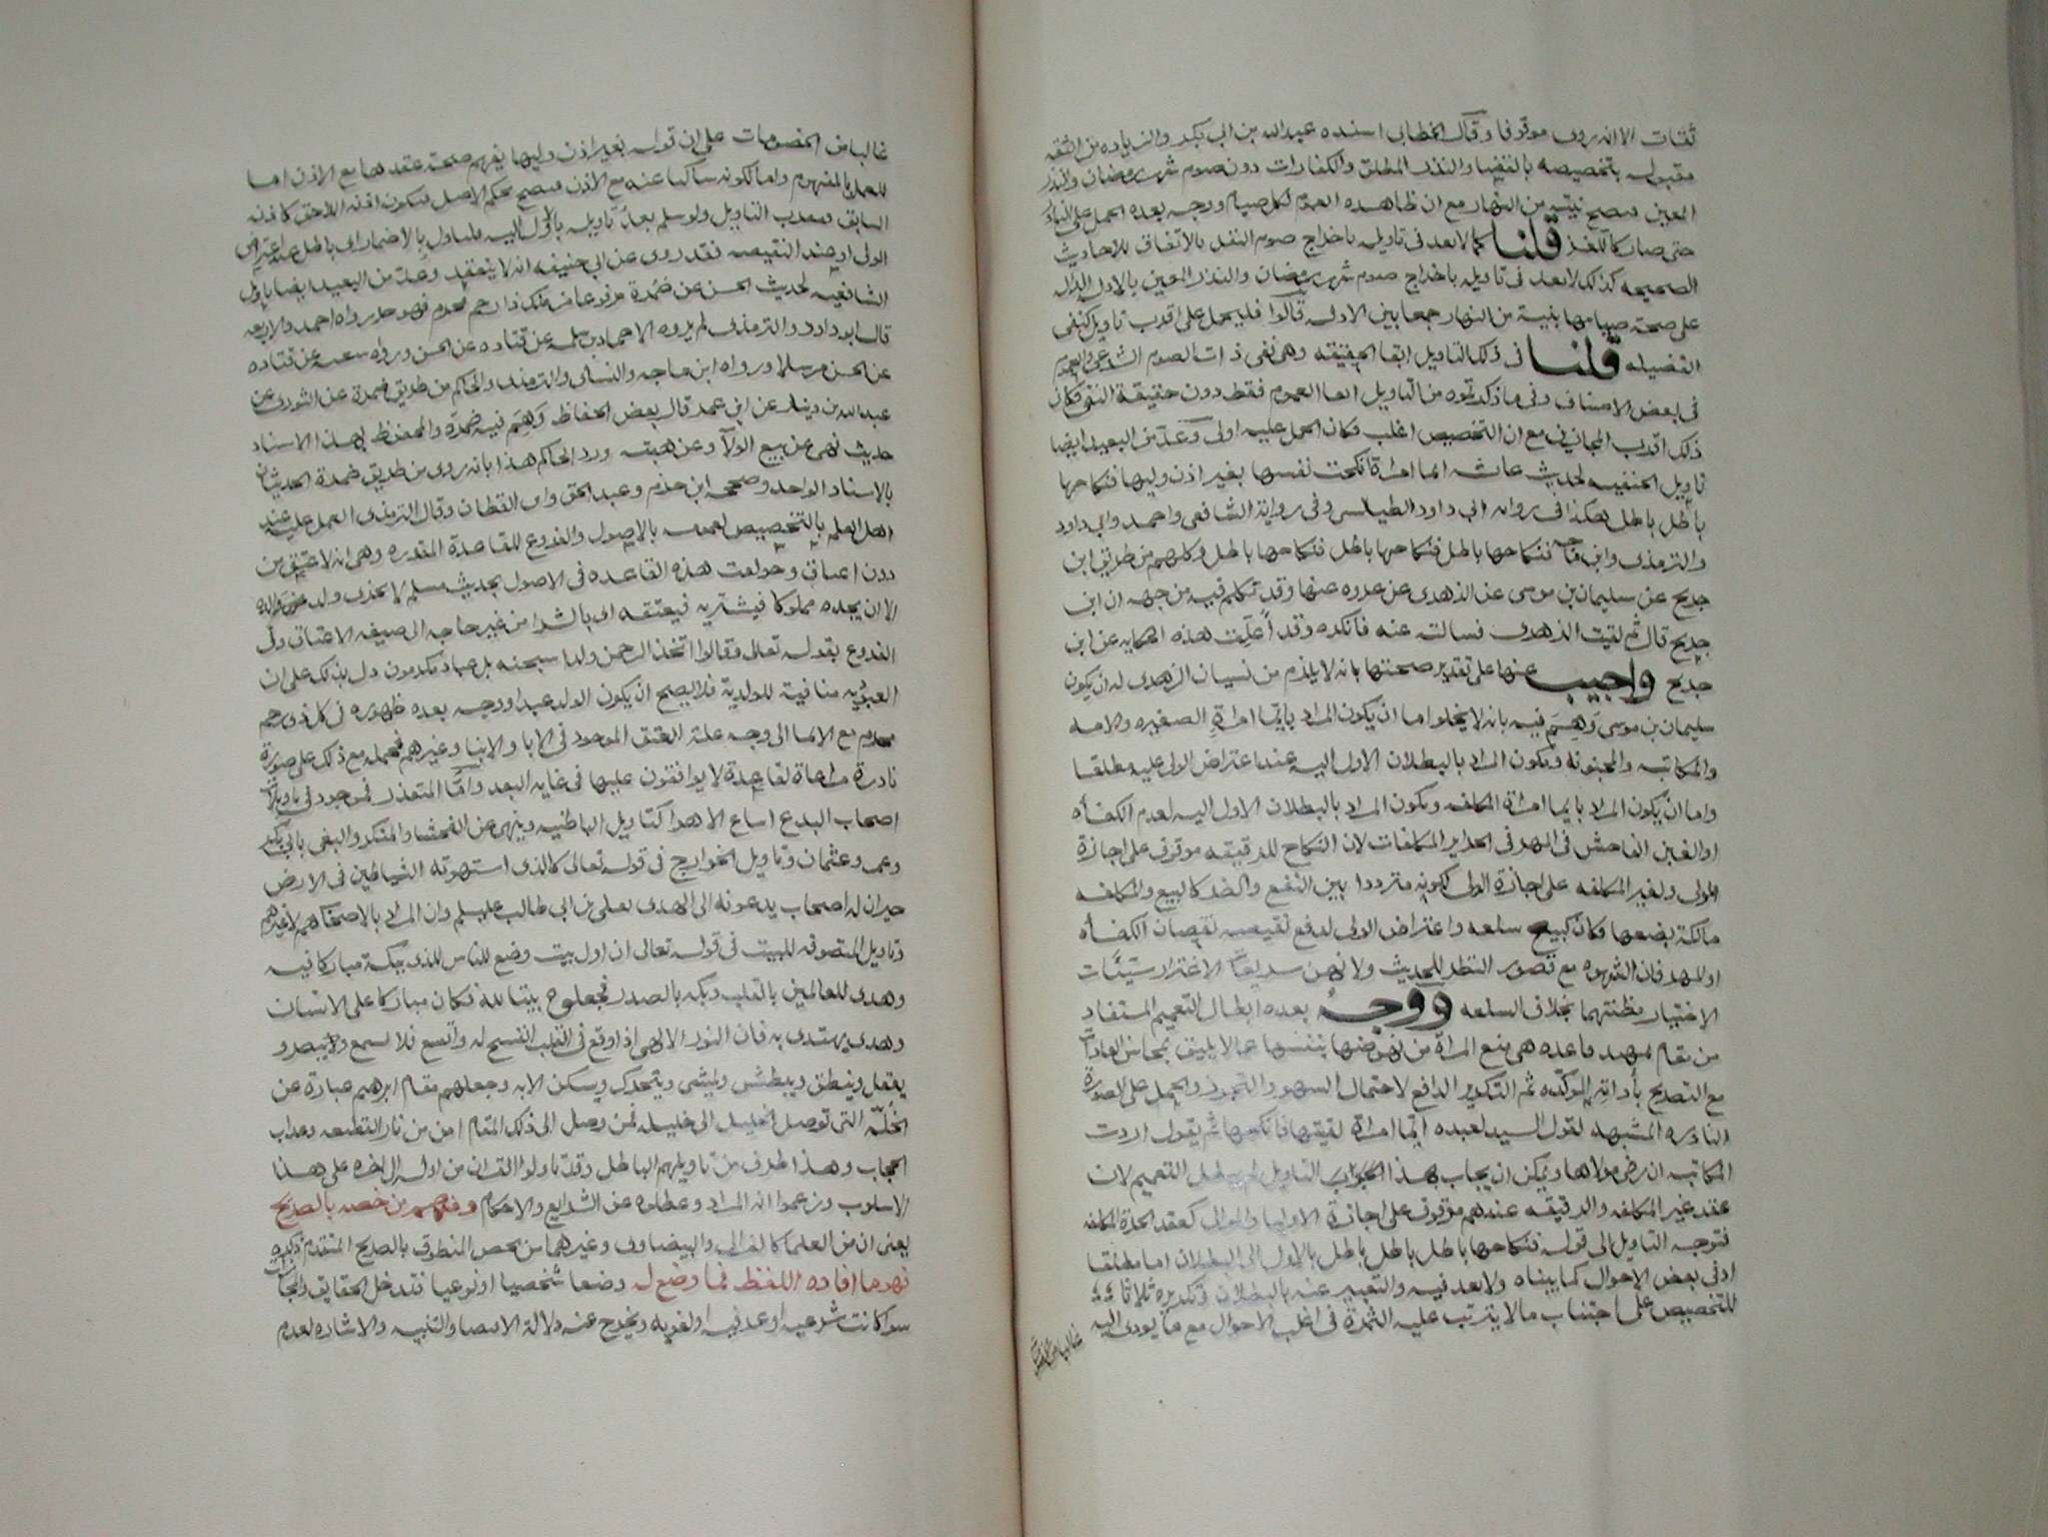 ثقات الا انه روى موقوفا وقال الخطابى اسنده عبد الله بن ابى بكر والزياده من الثقه
مقبوله بتخصيصه بالقضا والنذر المطلق والكفارات دون صوم شهر رمضان والنذر
المعين فتصح نيته من النهار مع ان ظاهره العموم لكل صيام ووجه بعده الحمل على النادر
حتى صار كاللغز قلنا كما لا بعد فى تاويله باخراج صوم النفل بالاتفاق للاحاديث
الصحيحه كذلك لا بعد فى تاويل باخراج صوم شهر رمضان والنذر المعين بالاولى الدال
على صحة صيامها بنية من النهار جمعا بين الادله قالوا فليحمل على اقرب تاويل كنفى
الفضيله قلنا فى ذلك التاويل ابقا الحقيقه وهى نفى ذات الصوم الشرعى والعموم
فى بعض الاصناف وفى ما ذكرتموه من التاويل ابقا العموم فقط دون حقيقة النفى فكان
ذلك اقرب المجازين مع ان التخصيص اغلب فكان الحمل عليه اولى وعد من البعيد ايضا
تاويل الحنفيه لحديث عائشه ايما امراة انكحت نفسها بغير اذن وليها فنكاحها
باطل باطل هكذا فى رواية ابى داود الطيالسى وفى رواية الشافعى واحمد وابى داود
والترمذى وابن ماجه فنكاحها باطل فنكاحها باطل فنكاحها باطل وكلهم من طريق ابن
جريج عن سليمان بن موسى عن الزهرى عن عروه عنها وقد تكلم فيه من جهة ان ابن
جريج قال ثم لقيت الزهرى فسالته عنه فانكره وقد أُعلّت هذه الحكايه عن ابن
جريج واجيب عنها على تقدير صحتها بانه لا يلزم من نسيان الزهرى له ان يكون
سليمان بن موسى وَهِمَ فيه بانه لا يخلوا اما ان يكون المراد بايّما امراةٍ الصغيره والامه
والمكاتبه والمجنونه ويكون المراد بالبطلان الاول اليه عند اعتراض الولى عليه مطلقا
واما ان يكون المراد بايما امراة المكلفه ويكون المراد بالبطلان الاول اليه لعدم الكفأه
او الغبن الفاحش فى المهر فى الحراير المكلفات لان النكاح للرقيقه موقوف على اجازة
المولى ولغير المكلفه على اجازة الولى لكونه مترددا بين النفع والضر كالبيع والمكلفه
مالكة بضعها فكان كبيع سلعه واعتراض الولى لدفع نقيصه نقصان الكفأه
او المهر فان الشهوه مع قصور النظر للحديث ولانهن سريعات الاغترار سيّئات
الاختيار مظنتهما بخلاف السلعه ووجه بعده ابطال التعميم المستفاد
من مقام تمهيد قاعده هى منع المراة من نهوضها بنفسها عما لا يليق بمحاسن العادات
مع التصريح بأداته المؤكده ثم التكرير الدافع لاحتمال السهو والتجوز والحمل على الصورة
النادره المشبهه لقول السيد لعبده ايّما امراة لقيتها فانكحها ثم يقول اردت
المكاتبه ان رضى مولاها ويمكن ان يجاب بهذا الجواب التاويل لم يبطل التعميم لان
عقد غير المكلفه والرقيقه عندهم موقوف على اجازة الاوليا والموالى كعقد الحرة المكلفه
فتوجه التاويل الى قوله فنكاحها باطل باطل باطل بالاول الى البطلان اما مطلقا
او فى بعض الاحوال كما بيناه ولا بعد فيه والتعبير عنه بالبطلان وتكريره ثلاثا
للتحضيض على اجتناب ما لا يترتب عليه الثمرة فى اغلب الاحوال مع ما يودى اليه
غالبا من الخصومات
غالبا من الخصومات على ان قوله بغير اذن وليها يفهم صحة عقدها مع الاذن اما
للعمل بالمفهوم واما لكونه ساكتا عنه مع الاذن فيصح بحكم الاصل فيكون اذنه اللاحق كاذنه
السابق فيقرب التاويل ولو سلم بعدُ تاويله بالأول اليه فليتاول بالاضمار اى باطل عند اعتراض
الولى او عند النقيصه فقد روى عن ابى حنيفه انه لا ينعقد وعدّ من البعيد ايضا تاويل
الشافعيه لحديث الحسن عن ضمرة مرفوعا من ملك ذا رحم محرم فهو حر رواه احمد والاربعه
قال ابو داود والترمذى لم يروه الا حماد بن سلمه عن قتاده عن الحسن ورواه شعبه عن قتاده
عن الحسن مرسلا ورواه ابن ماجه والنسائى والترمذى والحاكم من طريق ضمرة عن الثورى عن
عبد الله بن دينار عن ابن عمر قال بعض الحفاظ وَهِمَ فيه ضمرة والمحفوظ بهذا الاسناد
حديث نهى عن بيع الولآ وعن هبته ورد الحاكم هذا بانه روى من طريق ضمرة الحديثان
بالاسناد الواحد وصححه ابن حزم وعبد الحق وابن القطان وقال الترمذى العمل عليه عند
اهل العلم بالتخصيص لعمومه بالاصول والفروع للقاعدة المقرره وهى انه لا عتق من
دون اعتاق وخولفت هذه القاعده فى الاصول بحديث مسلم لا يجزى ولد عن والده
الا ان يجده مملوكا فيشتريه فيعتقه اى بالشرا من غير حاجه الى صيغه الاعتاق وفى
الفروع بقوله تعالى وقالوا اتخذ الرحمن ولدا سبحنه بل عباد مكرمون دل بذلك على ان
العبوديه منافية للولدية فلا يصح ان يكون الولد عبدا ووجه بعده ظهوره فى كل ذى رحم
محرم مع الايما الى وجه علة العتق الموجود فى الابا والابنا وغيرهم فحمله مع ذلك على صورة
نادرة مراعاة لقاعدة لا يوافقون عليها فى غايه البعد وامّا المتعذر فموجود فى تاويلات
اصحاب البدع اتباع الاهوا كتاويل الباطنيه وينهى عن الفحشا والمنكر والبغى بابى بكر
وعمر وعثمان وتاويل الخوارج فى قوله تعالى كالذى استهوته الشياطين فى الارض
حيران له اصحاب يدعونه الى الهدى بعلى بن ابى طالب علم وان المراد بالاصحاب هم لا غيرهم
وتاويل المتصوفه للبيت فى قوله تعالى ان اول بيت وضع للناس للذى ببكة مباركا فيه
وهدى للعالمين بالقلب وبكه بالصدر فجعلوه بيتا لله فكان مباركا على الانسان
وهدى يهتدى به فان النور الالهى اذا وقع فى القلب انفسح له واتسع فلا يسمع ولا يبصر و
يعقل وينطق ويبطش ويمشى ويتحرك ويسكن الا به وجعلهم مقام ابرهيم عبارة عن
الخُلّه التى توصل الخليل الى خليله فمن وصل الى ذلك المقام امن من نار القطيعه وعذاب
الحجاب وهذا طرف من تاويلهم الباطل وقد تاولوا القران من اوله الى اخره على هذا
الاسلوب وزعموا انه المراد وعطلوه عن الشرايع والاحكام ومنهم من خصه بالصريح
يعنى ان من العلما كالغزالى والبيضاوى وغيرهما من يخص المنطوق بالصريح المتقدم ذكره
فهو ما افاده اللفظ فيما وضع له وضعا شخصيا او نوعيا فتدخل الحقايق والمجازات
سوا كانت شرعيه او عرفيه او لغويه ويخرج عنه دلالة الاقتضا والتنبيه والاشاره لعدم